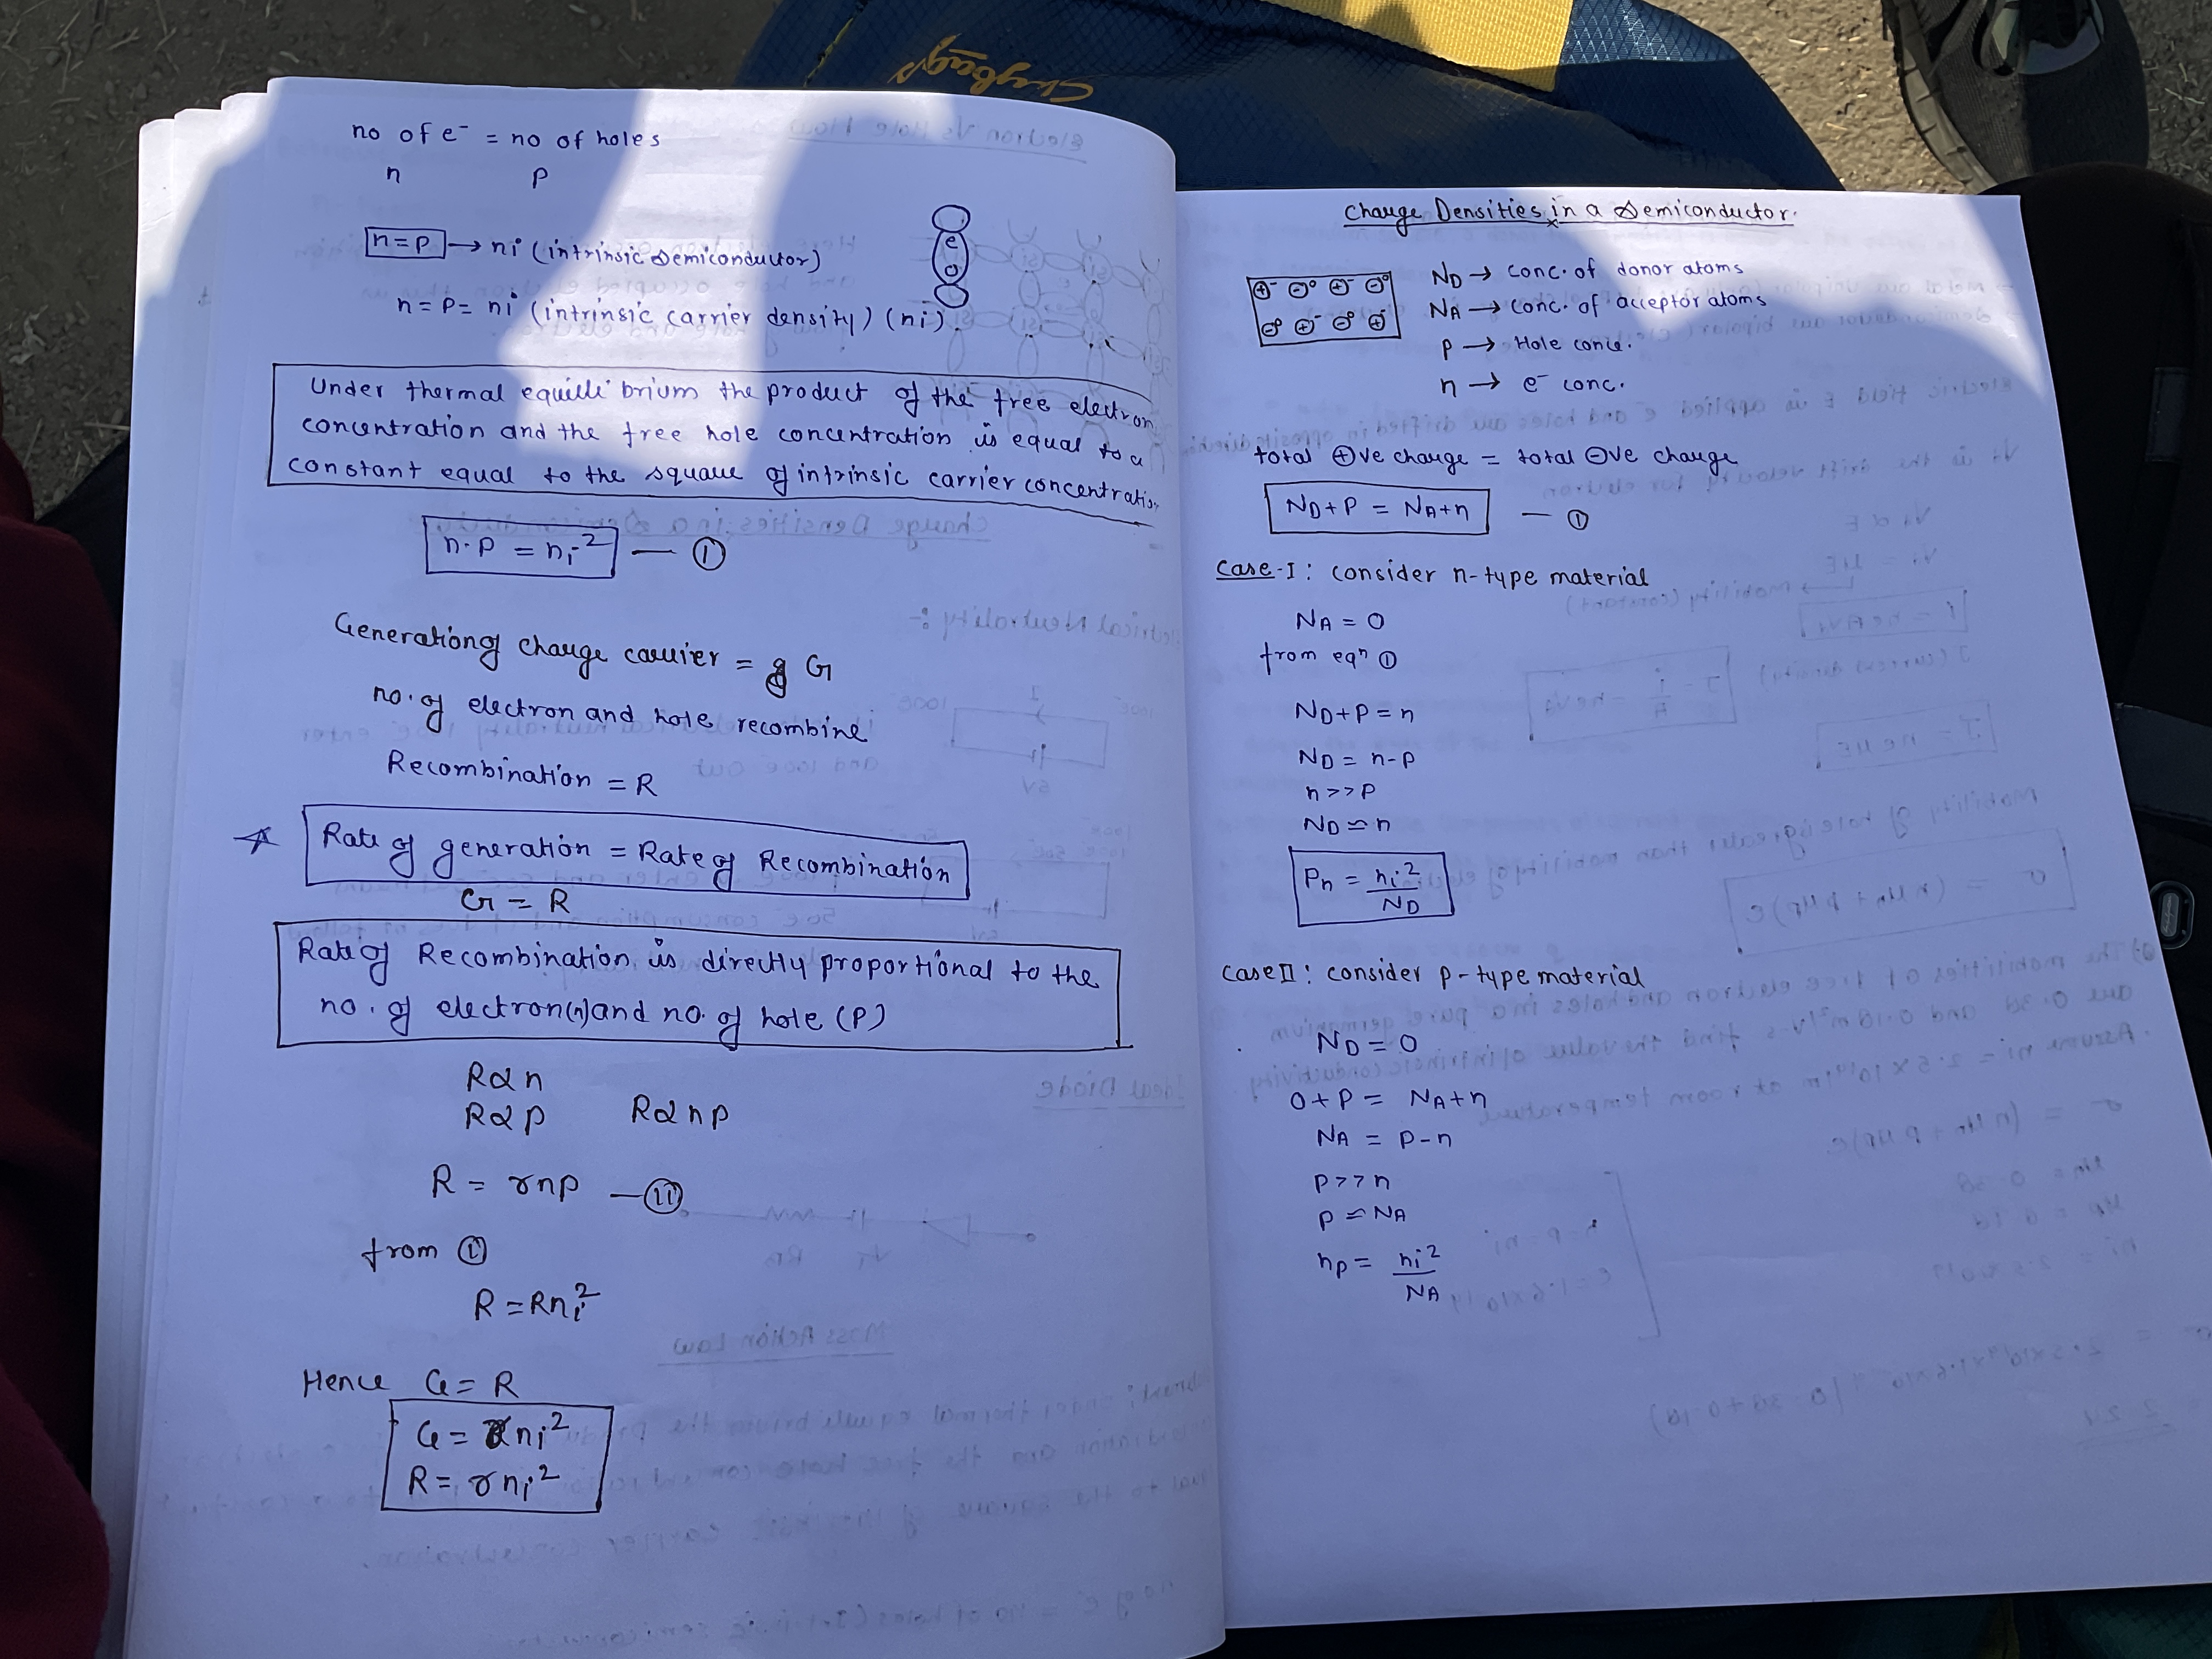 Skybags
no of e⁻ = no of holes
n p
n = p → ni (intrinsic semiconductor)
n = p = ni (intrinsic carrier density) (ni).
e
o
Under thermal equilli brium the product of the free electron
concentration and the free hole concentration is equal to a
constant equal to the square of intrinsic carrier concentration
n·p = ni² — ①
Generation of charge carrier = G
no. of electron and hole recombine
Recombination = R
Rate of generation = Rate of Recombination
G = R
Rate of Recombination is directly proportional to the
no. of electron(n) and no. of hole (P)
R α n
R α p R α n p
R = rnp — ⑪
from ①
R = Rni²
Hence G = R
G = r ni²
R = r ni²
Charge Densities in a Semiconductor.
ND → conc. of donor atoms
NA → conc. of acceptor atoms
P → Hole conc.
n → e⁻ conc.
total ⊕ve charge = total ⊖ve charge
ND + P = NA + n — ①
Case-I : consider n-type material
NA = 0
from eqⁿ ①
ND + P = n
ND = n - p
n >> P
ND ≃ n
Pn = ni² / ND
Case II : consider p-type material
ND = 0
0 + P = NA + n
NA = P - n
P >> n
P ≃ NA
np = ni² / NA